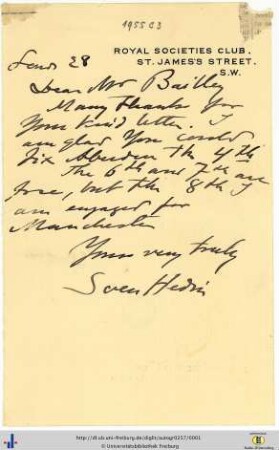 1955 C3
ROYAL SOCIETIES CLUB,
ST. JAMES'S STREET,
S.W.
28
Dear Mr Bailey
Many thanks for
your kind letter. I
am glad you could
fix Aberdeen the 4th
The 6th and 7th are
free, but the 8th I
am engaged for
Manchester
Yours very truly
Sven Hedin
http://dl.ub.uni-freiburg.de/diglit/autogr0237/0001
Universitätsbibliothek Freiburg